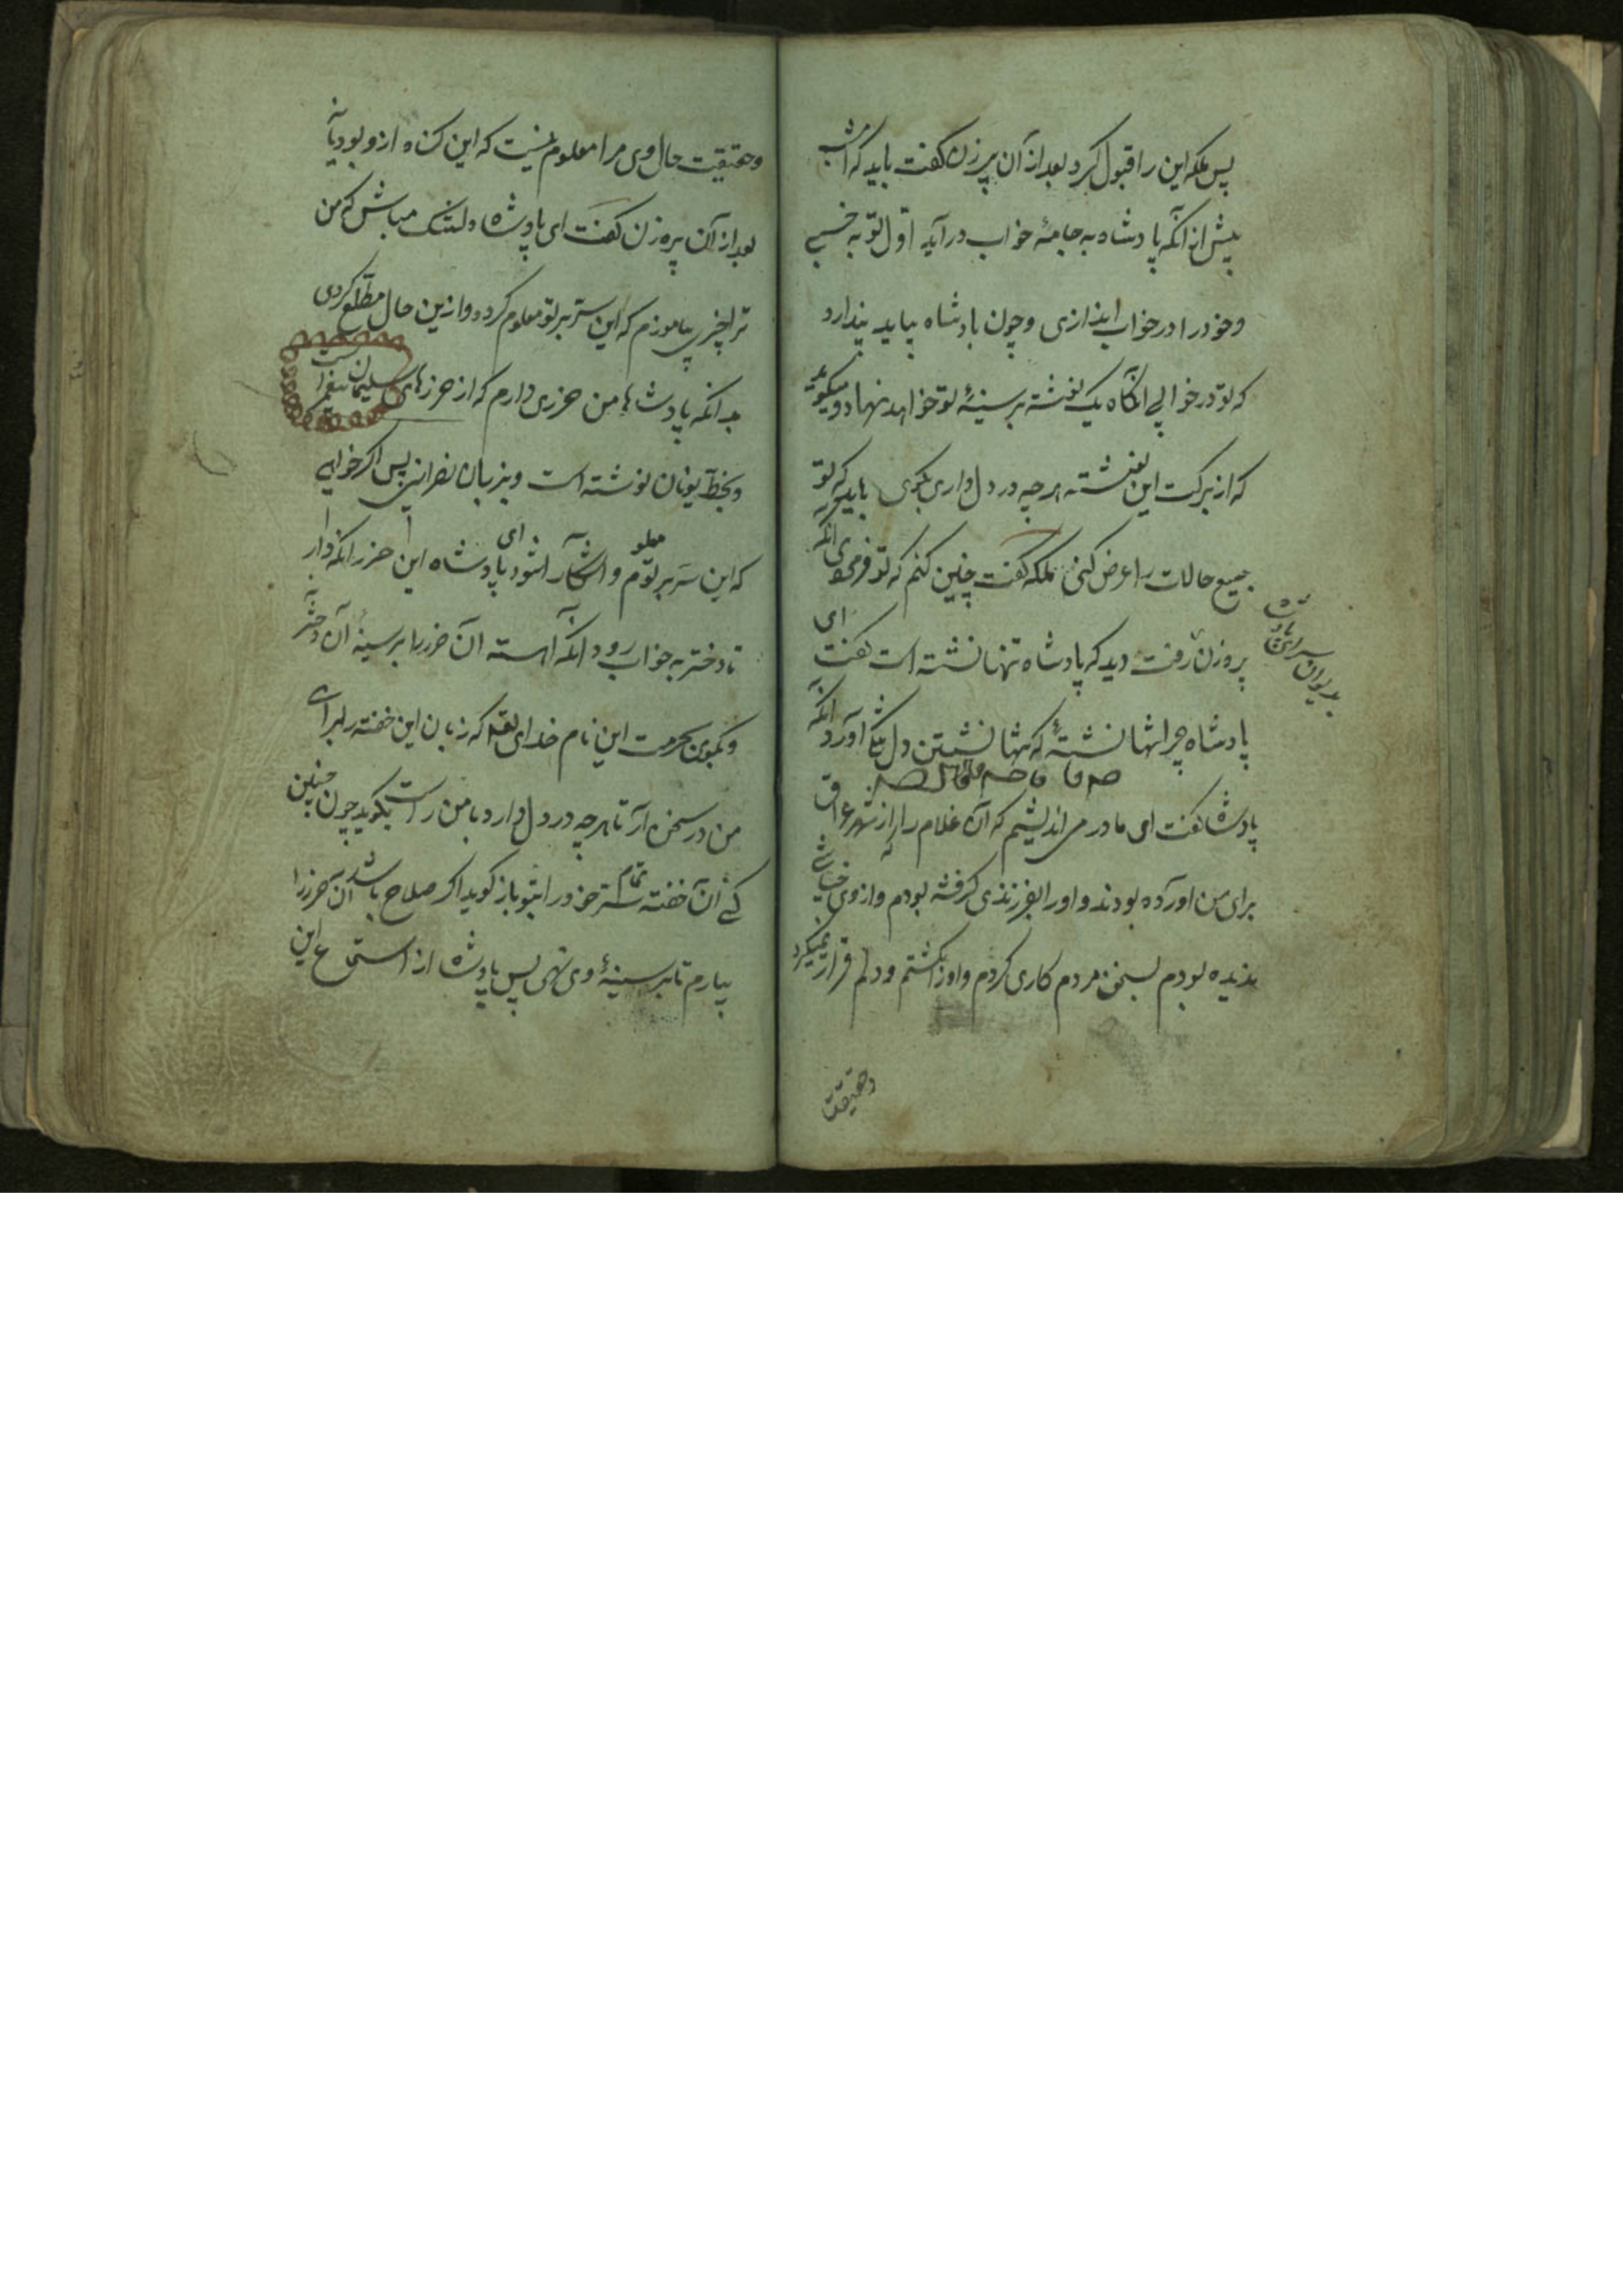 پس ملکه این را قبول کرد بعد از آن پیرزن کفت باید که امشب
پیش از انکه پادشاه به جامهٔ خواب درآید اوّل تو به خسبی
و خود را در خواب اندازی و چون پادشاه بیاید پندارد
که تو در خوابی انکاه یک نوشته بر سینهٔ تو خواهد نهاد و میکوید
که از برکت این نوشته هر چه در دل داری بکوی باید که تو
جمیع حالات را عرض کنی ملکه کفت چنین کنم که تو فرمودی انکه
پیرزن رفت دید که پادشاه تنها نشسته است کفت ای
پادشاه چرا تنها نشستهٔ که تنها نشستن دل تنک آورد انکه
پادشاه کفت ای مادر می اندیشم که آن غلام را از شهر عراق
برای من اورده بودند و او را بفرزندی کرفته بودم و از وی
ندیده بودم بسخن مردم کاری کردم و او را کشتم و دلم قرار نمیکیرد
وحقیقت
وحقیقت حال وی مرا معلوم نیست که این کناه ازو بود یا نه
بعد از آن پیره زن کفت ای پادشاه دلتنک مباش که من
ترا چیزی بیاموزم که این ستر بر تو معلوم کردد و ازین حال مطّلع کردی
بدانکه پادشاها من حرزی دارم که از حرزهای سلیمان پیغمبر است
و بخطّ یونان نوشته است و بزبان نصرانی پس اکر خواهی
که این سر بر تو معلوم و اشکارا شود ای پادشاه این حرز را نکه دار
تا دختر به خواب رود انکه آهسته ان حرز را بر سینهٔ آن دختر نه
و بکوی بحرمت این نام خدای تعالی که زبان این خفته را برای
من در سخن آر تا هر چه در دل دارد با من راست بکوید چون چنین
کنی آن خفته تمام ستر خود را بتو باز کوید اکر صلاح باشد آن حرز را
بیارم تا بر سینهٔ وی نهی پس پادشاه از استماع این